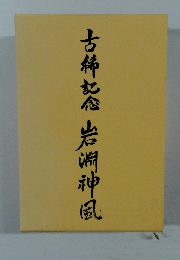 古稀記念 岩淵神風